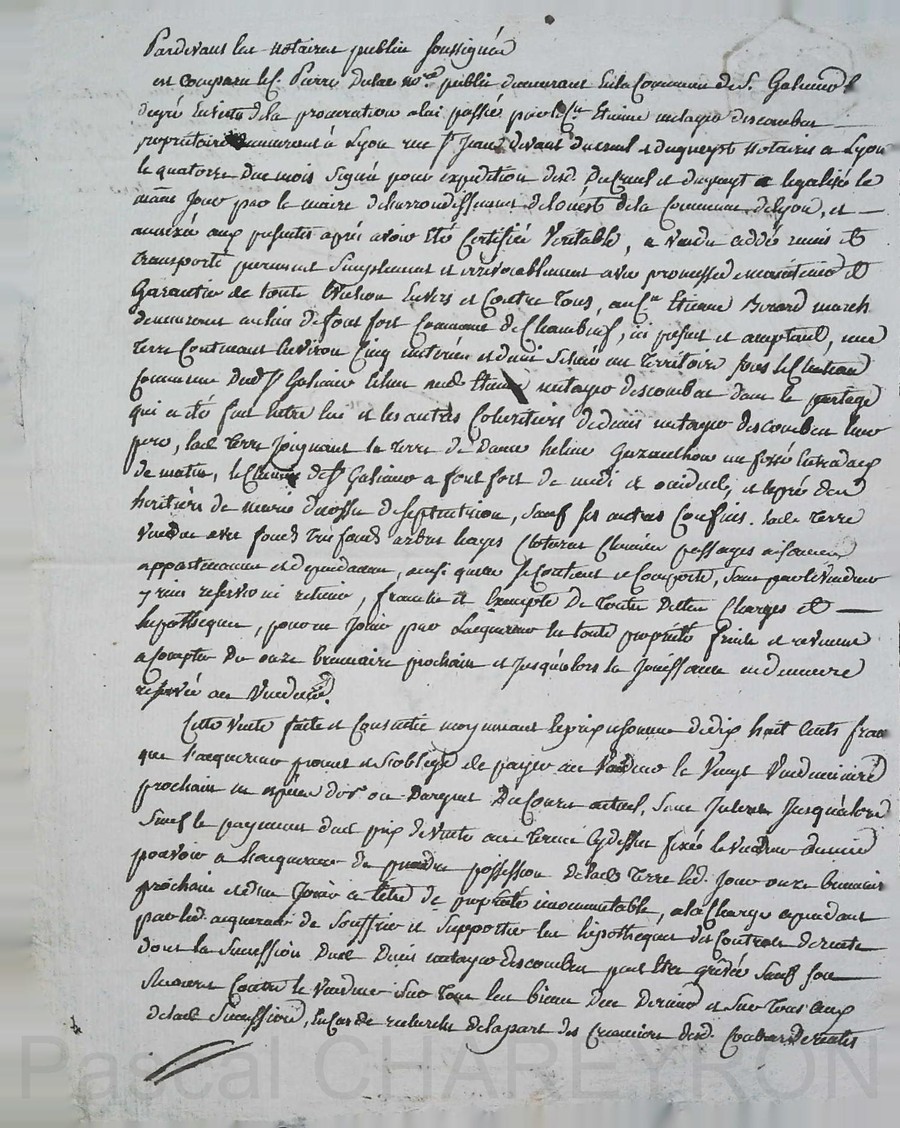 Pardevant les notaires publics soussignés
est comparu le C. Pierre Dulac no.re public demeurant en la Commune de S. Galmier
degré en vertu de la procuration a lui passée par le C.en Etienne metayer descombes
propriétaire demeurant à Lyon rue S. Jean devant ducreuil et dugueyt notaires a Lyon
le quatorze du mois signée pour expédition desd. Ducreuil et dugueyt et légalisée le
même jour par le maire de l'arrondissement de l'ouest de la Commune de Lyon, et
annexée aux présentes après avoir été Certifiée Véritable, a vendu cédé remis et
transporté purement simplement et irrévocablement avec promesse de maintenir et
Garantir de toute Eviction Envers et Contre Tous, au C.en Etienne march
demeurant au lieu de font fort Commune de Chambœuf, ici présent et acceptant, une
Terre Contenant Environ Cinq et demi Située au Territoire sous le Chateau
Commune dud. S. Galmier Echue aud. Etienne metayer descombes dans le partage
qui a été fait entre lui et les autres Cohéritiers de denis metayer descombes leur
pere, lad. terre joignant la terre de Dame helene un fossé Entredeux
de matin, le Chemin de S. Galmier a font fort de midi et occident, et le pré des
héritiers de marie de septentrion, sauf ses autres Confins. lad. Terre
Vendue avec fonds tres fonds arbres hayes Clotures Chemins passages aisances
appartenances et dépendances, ainsi qu'elle se Contient et Comporte, sans par le Vendeur
y rien reserver ni retenir, franche et Exempte De Toutes Dettes Charges et
hypotheques, pour en Jouir par L'acquereur En toute propriété fruits et revenus
a Compter du onze brumaire prochain et jusqu'alors la Jouissance en demeure
reservée au Vendeur.
Cette vente faite et Consentie moyennant le prix et somme de dix huit Cents francs
que l'acquereur promet et s'oblige de payer au Vendeur le Vingt Vendemiaire
prochain en espèces d'or ou D'argent Du Cours actuel, sans Interets Jusqu'alors
Sauf le payement dud. prix de vente au Terme Cydessus fixé le Vendeur donne
pouvoir a L'acquereur de prendre possession de lad. Terre led. jour onze brumaire
prochain et d'en Jouir a titre de propriété incommutable, a la Charge cependant
par led. acquereur de Souffrir et Supporter les hypotheques des Contrats de rente
dont la Succession Dud. Denis metayer descombes peut Etre grévée Sauf son
Recours Contre le Vendeur Sur Tous les biens Du Dernier et Sur Tous Ceux
de lad. Succession, En Cas de recherche de la part des Créanciers desd. Contrats De rentes
Pascal CHAREYRON